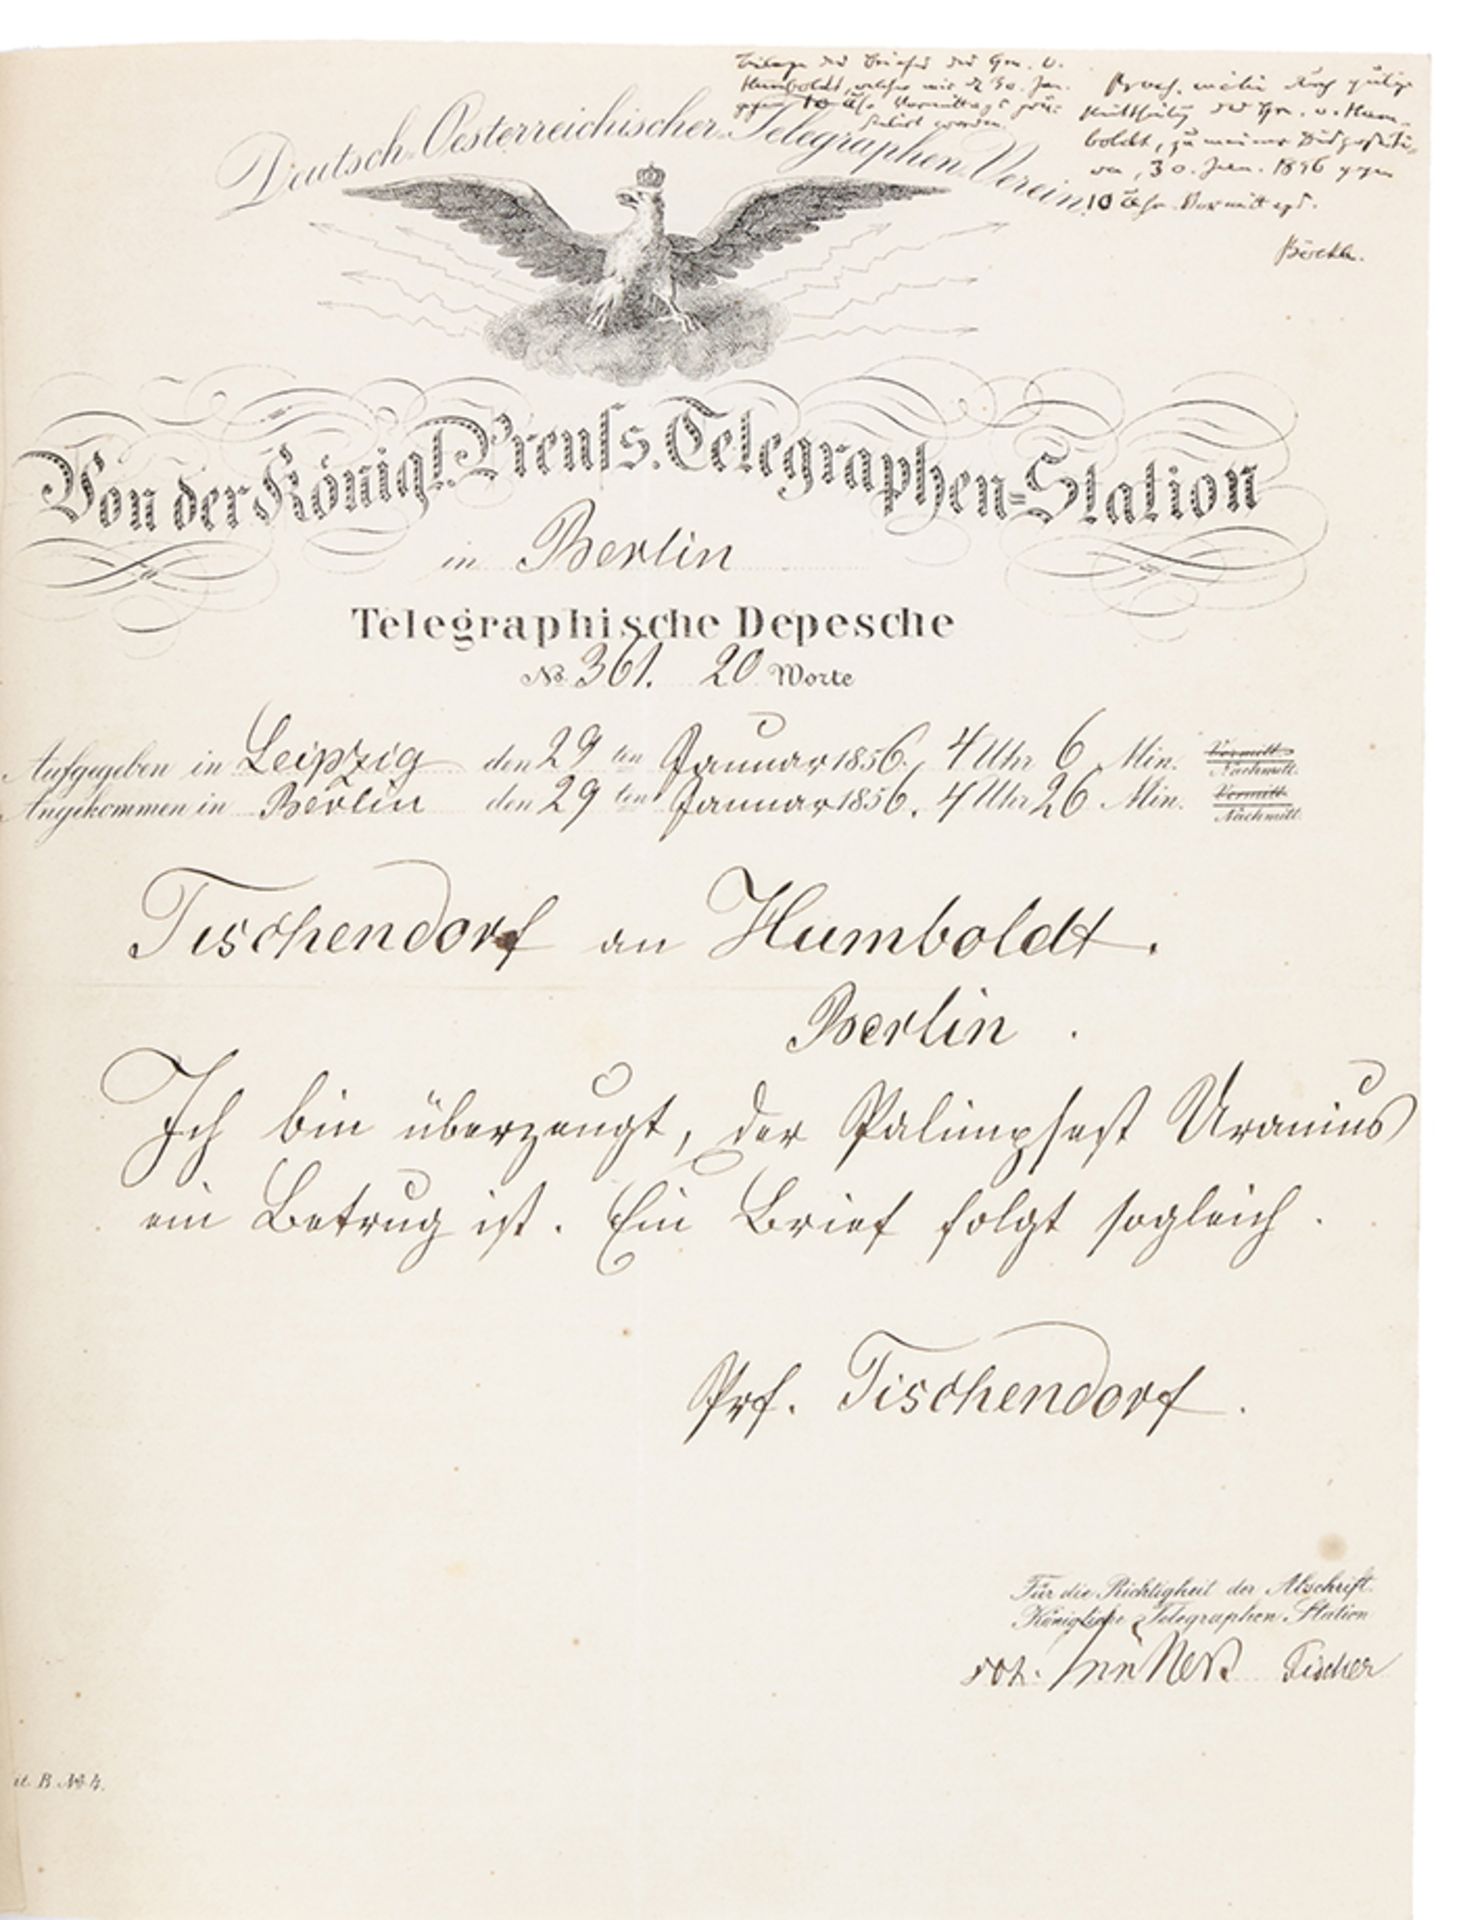 Beilage des Briefes des Hrn. v.
Humboldt, welcher mir d. 30. Jan.
gegen 10 Uhr Vormittags
worden.
Prof. durch gütige
Mittheilung des Hrn. v. Hum-
boldt, zu meiner Dispositi-
on, 30. Jan. 1856 gegen
10 Uhr Vormittags.
Böckh.
Deutsch-Oesterreichischer Telegraphen-Verein.
Von der Königl. Preuſs. Telegraphen-Station
in Berlin
Telegraphische Depesche
No. 361. 20 Worte
Aufgegeben in Leipzig den 29 ten Januar 1856. 4 Uhr 6 Min. Vormitt. Nachmitt.
Angekommen in Berlin den 29 ten Januar 1856. 4 Uhr 26 Min. Vormitt. Nachmitt.
Tischendorf an Humboldt.
Berlin.
Ich bin überzeugt, der Palimpsest Uranius
ein Betrug ist. Ein Brief folgt sogleich.
Prf. Tischendorf.
Für die Richtigkeit der Abschrift.
Königliche Telegraphen-Station
Fischer
it. B. No 4.